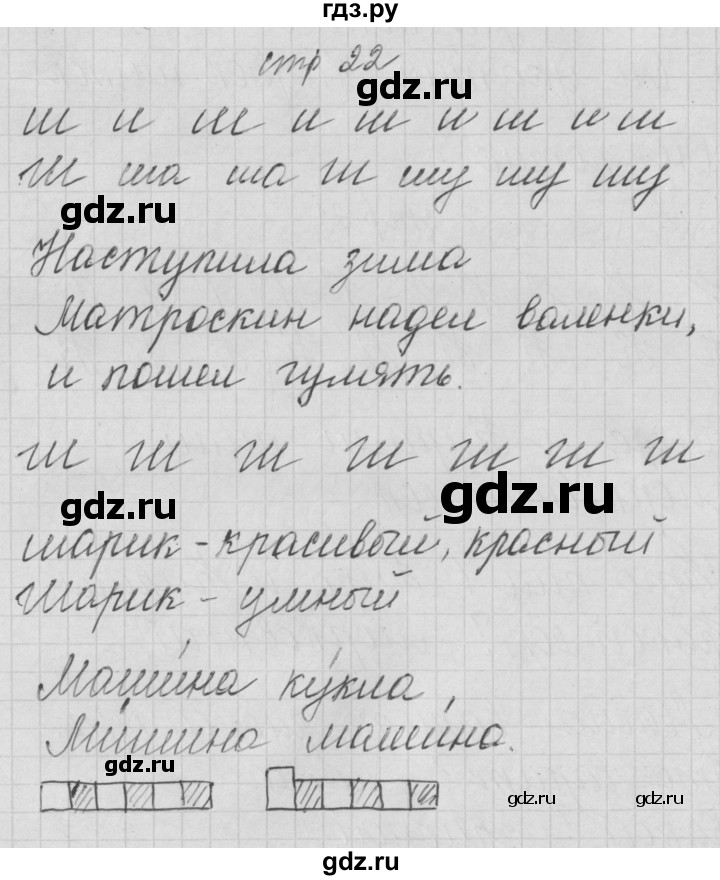 гдз.ру
стр 22
gdz.ru
ш и ш и ш и ш и ш
Ш ша ша Ш шу шу шу
gdz.ru
Наступила зима
Матроскин надел валенки,
и пошел гумять.
Ш Ш Ш Ш Ш Ш Ш
gdz.ru
gdz.ru
шарик - красивый, красный
Шарик - умный
Маши́на ку́кла
Ми́шина маши́на.
gdz.ru
gdz.ru
gdz.ru
gdz.ru